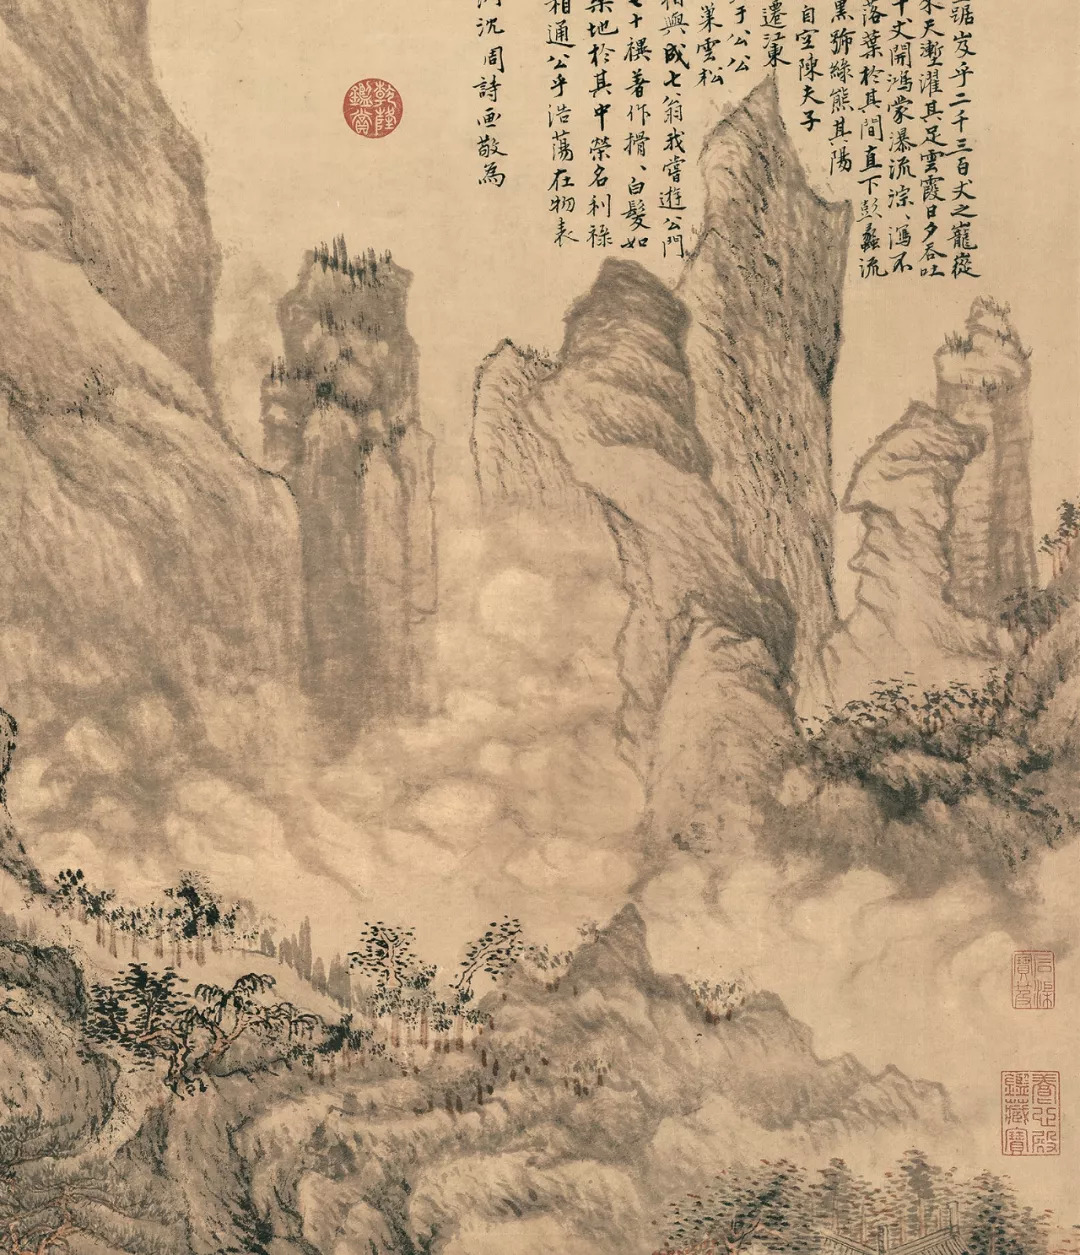 踞岌乎二千三百丈之巃嵸
天塹濯其足雲霞日夕吞吐
千丈開鴻蒙瀑流淙、瀉不
落葉於其間直下彭蠡流
黑號綠熊其陽
自空陳夫子
遷江東
于公公
巢雲松
相與成七翁我嘗遊公門
七十禩著作搰、白髮如
築地於其中榮名利祿
相通公乎浩蕩在物表
沈周詩画敬為
乾隆鑑賞
石渠寶笈
養心殿鑑藏寶